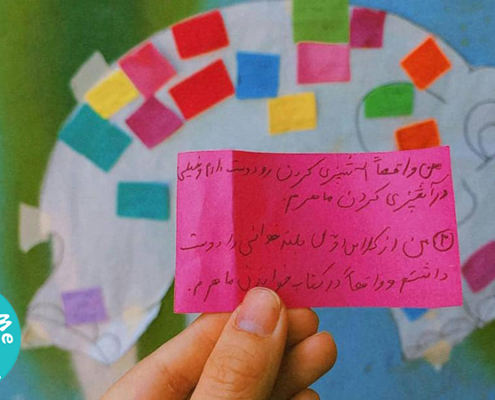 من واقعاً آشپزی کردن رو دوست دارم و خیلی
در آشپزی کردن ماهرم.
② من از کلاس اول بلندخوانی را دوست
داشتم و واقعاً در کتاب خواندن ماهرم.
Me